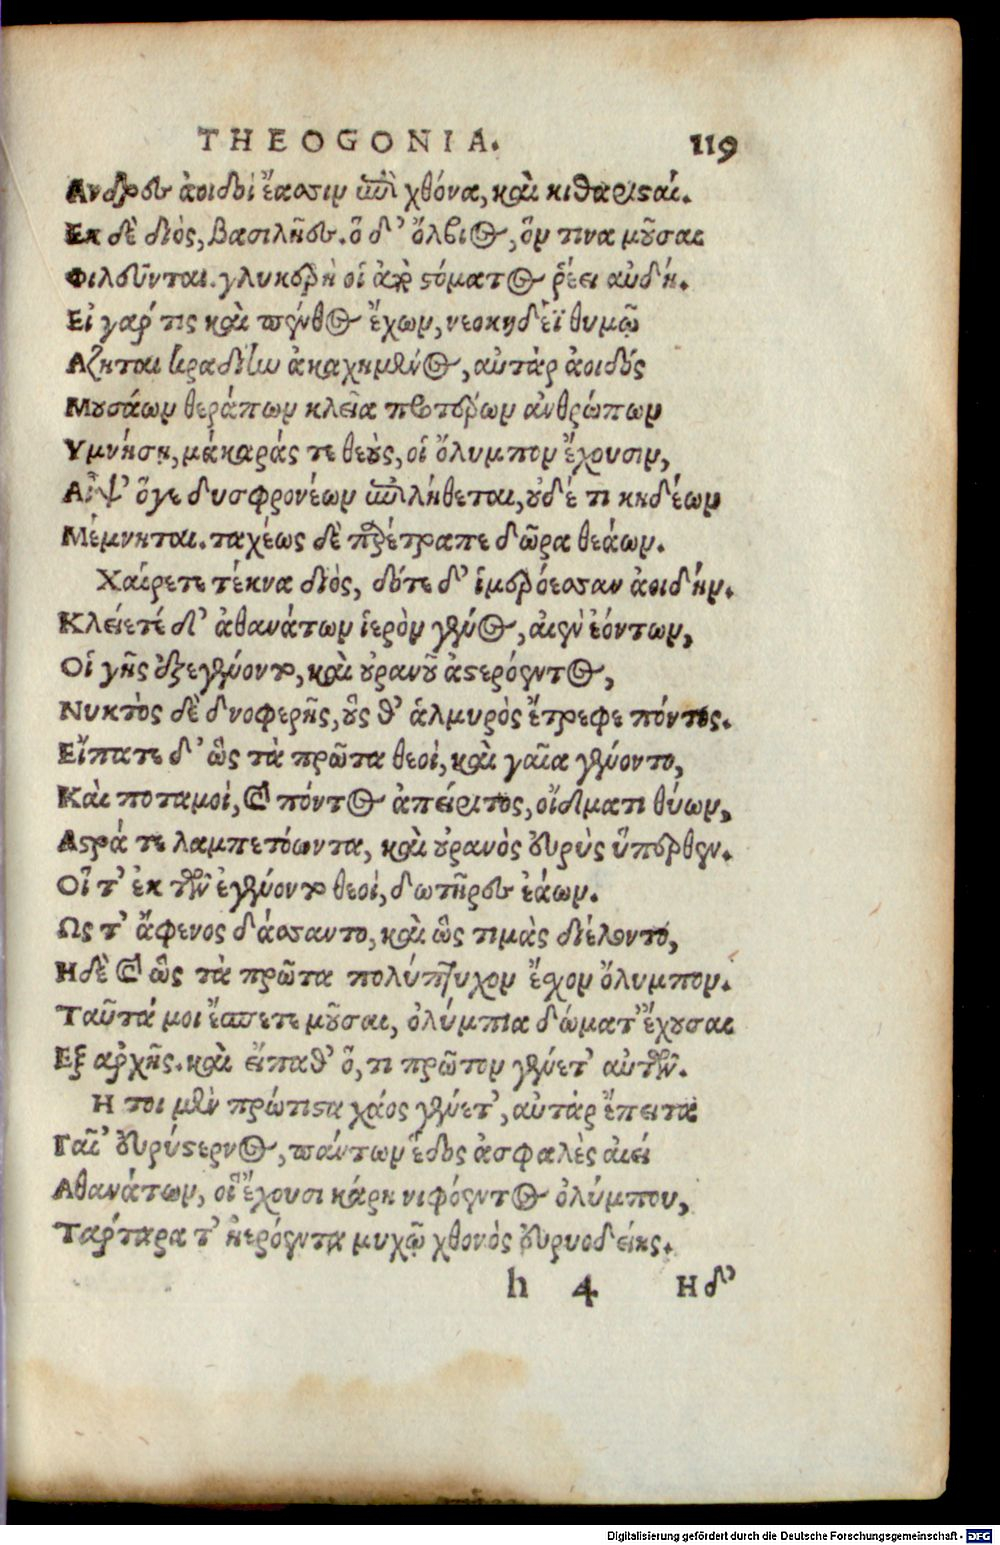 THEOGONIA. 119
Ανδρες ἀοιδοὶ ἔασσιν ἐπὶ χθόνα, καὶ κιθαρισαί.
Εκ δὲ διὸς, βασιλῆες. ὅ δ' ὄλβιος, ὅν τινα μοῦσαι
Φιλεῦνται. γλυκερή οἱ ἀπὸ στόματος ῥέει αὐδή.
Εἰ γάρ τις καὶ πένθος ἔχων, νεοκηδέϊ θυμῷ
Αζηται κραδίην ἀκαχημένος, αὐτὰρ ἀοιδός
Μουσάων θεράπων κλεῖα προτέρων ἀνθρώπων
Υμνήσῃ, μάκαράς τε θεοὺς, οἱ ὄλυμπον ἔχουσιν,
Αἶψ' ὅγε δυσφρονέων ἐπιλήθεται, οὐδέ τι κηδέων
Μέμνηται. ταχέως δὲ παρέτραπε δῶρα θεάων.
Χαίρετε τέκνα διὸς, δότε δ' ἱμερόεσσαν ἀοιδήν.
Κλείετέ δ' ἀθανάτων ἱερὸν γένος, αἰὲν ἐόντων,
Οἱ γῆς ἐξεγένοντο, καὶ οὐρανοῦ ἀστερόεντος,
Νυκτὸς δὲ δνοφερῆς, οὕς θ' ἁλμυρὸς ἔτρεφε πόντος.
Εἴπατε δ' ὡς τὰ πρῶτα θεοὶ, καὶ γαῖα γένοντο,
Καὶ ποταμοὶ, καὶ πόντος ἀπείριτος, οἴδματι θύων,
Αστρά τε λαμπετόωντα, καὶ οὐρανὸς εὐρὺς ὕπερθεν.
Οἵ τ' ἐκ τῶν ἐγένοντο θεοὶ, δωτῆρες ἐάων.
Ως τ' ἄφενος δάσσαντο, καὶ ὡς τιμὰς διέλοντο,
Ηδὲ καὶ ὡς τὰ πρῶτα πολύπτυχον ἔχον ὄλυμπον.
Ταῦτά μοι ἔσπετε μοῦσαι, ὀλύμπια δώματ' ἔχουσαι
Εξ ἀρχῆς. καὶ εἴπαθ' ὅ, τι πρῶτον γένετ' αὐτῶν.
Η τοι μὲν πρώτιστα χάος γένετ', αὐτὰρ ἔπειτα
Γαῖ' εὐρύστερνος, πάντων ἕδος ἀσφαλὲς αἰεί
Αθανάτων, οἳ ἔχουσι κάρη νιφόεντος ὀλύμπου,
Τάρταρα τ' ἠερόεντα μυχῷ χθονὸς εὐρυοδείης.
h 4 Ηδ'
Digitalisierung gefördert durch die Deutsche Forschungsgemeinschaft - DFG